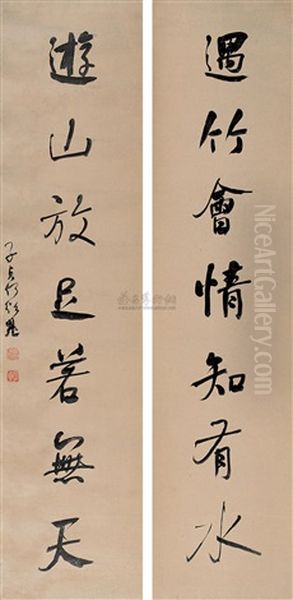 遇竹會情知有水
遊山放足若無天
子貞何紹基
NiceArtGallery.com